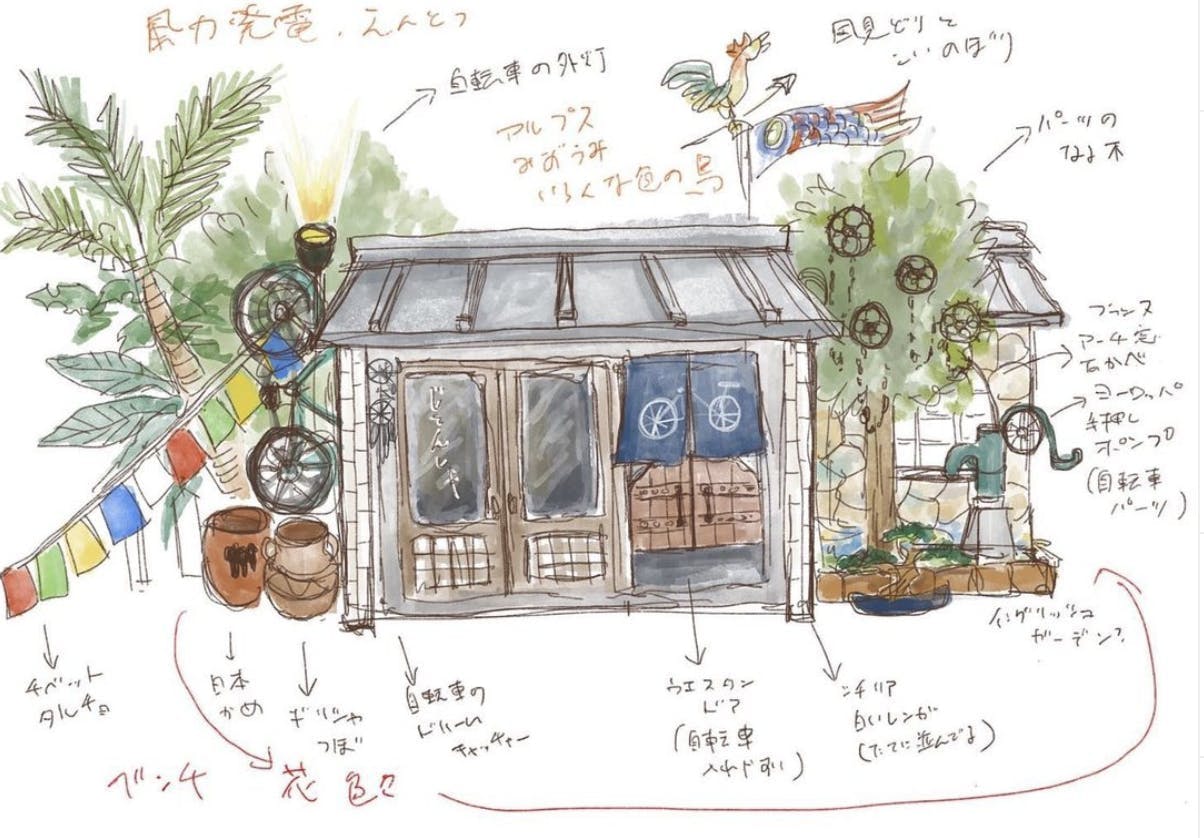 風力発電、えんとつ
自転車の外灯
風見どりと
こいのぼり
アルプス
みずうみ
いろんな色の鳥
パーツの
なる木
フランス
アーチ窓
石かべ
ヨーロッパ
手押し
ポンプ
(自転車
パーツ)
じてんしゃ
イングリッシュ
ガーデン?
チベット
タルチョ
日本
かめ
ギリシャ
つぼ
自転車の
ドリーム
キャッチャー
ウエスタン
ドア
(自転車
入れやすい)
シチリア
白いレンガ
(たてに並んでる)
ベンチ
花 色々